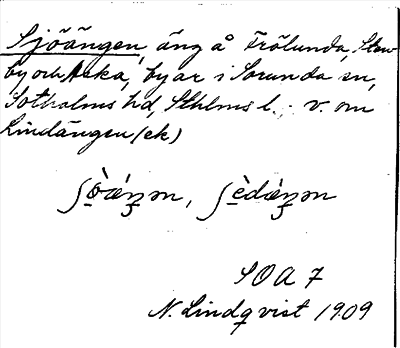 Sjöängen, äng å Trölunda, Sten
by och Aska, byar i Sorunda sn,
Sotholms hd, Sthlms l.; v. om
Lindängen (ek)
SOA 7
N. Lindqvist 1909